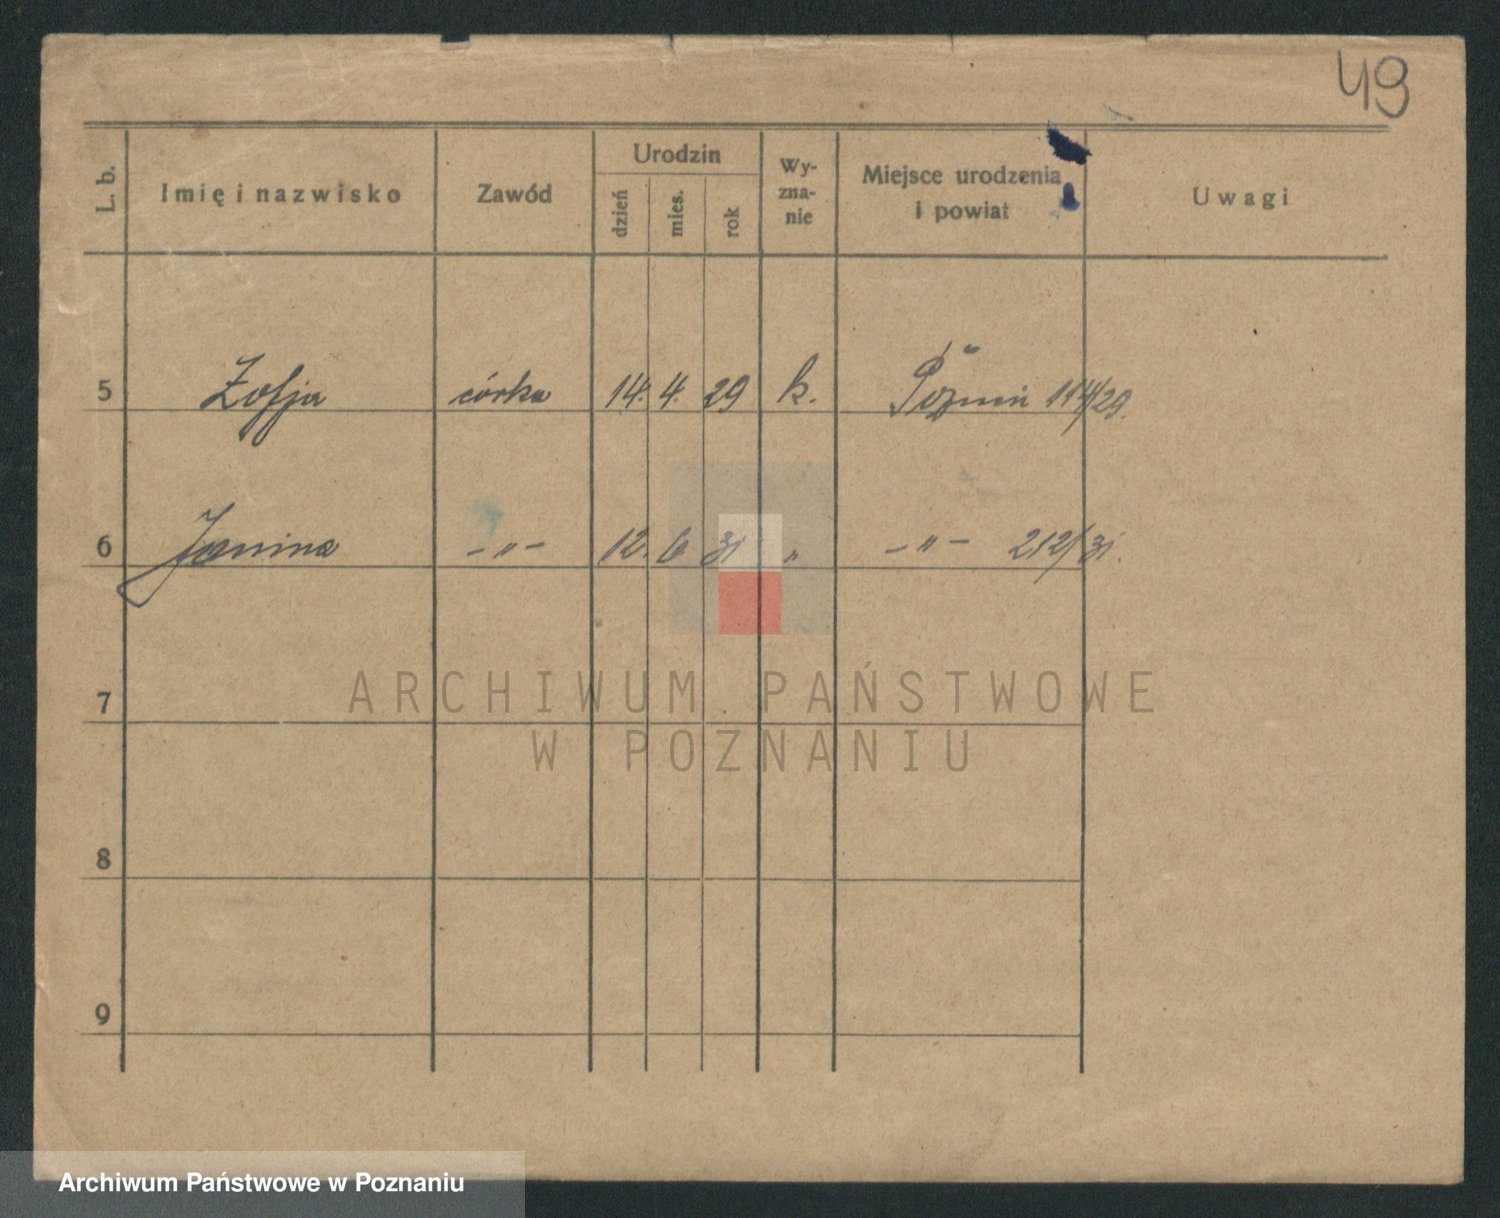 49
L. b. Imię i nazwisko Zawód Urodzin dzień mies. rok Wy-zna-nie Miejsce urodzenia i powiat Uwagi
5 Zofja córka 14. 4. 29 k. 114/29.
6 Janina -"- 12. 6 31 " -"- 212/31.
7
ARCHIWUM PAŃSTWOWE
W POZNANIU
8
9
Archiwum Państwowe w Poznaniu